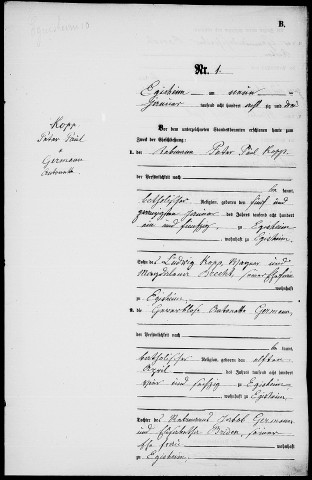 B.
Nr. 1.
Kopp
Peter Paul
u
Germann
Antonette
Egisheim am neun ten
Januar tausend acht hundert acht zig und drei
Vor dem unterzeichneten Standesbeamten erschienen heute zum
Zweck der Eheschließung:
1. der Rebmann Peter Paul Kopp
der Persönlichkeit nach
be kannt,
katholischer Religion, geboren den fünf und
zwanzigsten Januar des Jahres tausend acht hundert
ein und fünfzig zu Egisheim
wohnhaft zu Egisheim
Sohn des Ludwig Kopp, Wagner und
Magdalena Brecht, seiner Ehefrau
wohnhaft
zu Egisheim
2. die Gewerblose Antonette Germann,
der Persönlichkeit nach
be kannt,
katholischer Religion, geboren den elften
April des Jahres tausend acht hundert
vier und fünfzig zu Egisheim
wohnhaft zu Egisheim
Tochter des Rebmannes Jakob Germann
und Elisabetha Briden, seiner
Ehefrau wohnhaft
zu Egisheim